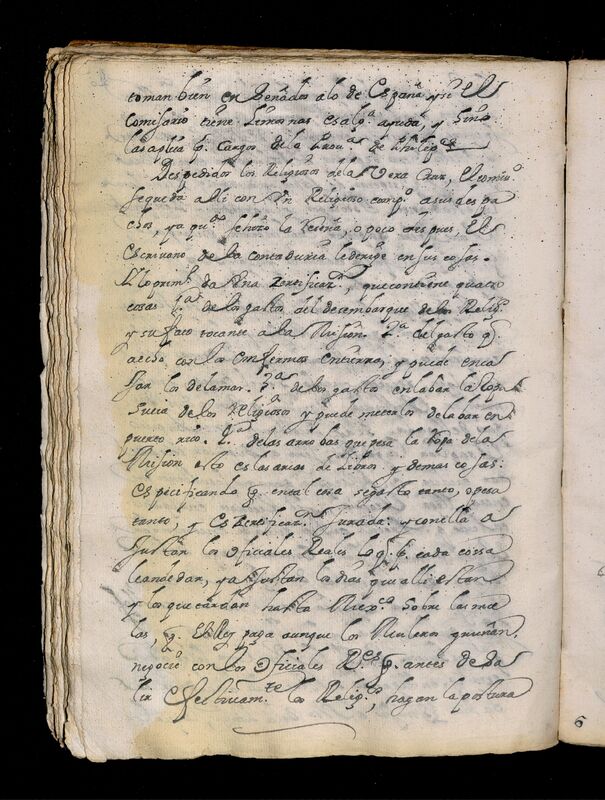 toman bien en Senados a lo de España, y si el
Comisario tiene limosnas es alg.ª ayuda, y sino
las aplia p.ª Cargos de la Prou.ª de Philip.ª
Despedidos los Religiosos de la Vera Cruz, el comiss.º
se queda alli con Vn Religioso comp.º a sus despa
chos, y a q.º se hizo la Reseña, o poco despues, El
escriuano de la contaduria le dirije en sus cosas.
Lo prim.º da Vna Zertificaz.n, que contiene quatro
cosas 1.ª de los gastos del desembarque de los Relig.s
y su flete tocante a la Mision. 2.ª del gasto q.
a auido con los enfermos entierros, y puede enca
jar los de la mar. 3.ª de los gastos en labar la Ropa
sucia de los Religiosos y puede meter los de labar en
puerto rico. 4.ª de las arrobas que pesa la Ropa de la
Mision esto es las arcas de Libros y demas cosas:
especificando q. en tal cosa se gasto tanto, o pesa
tanto, y es Zertificaz.n Jurada: y con ella a
justan los Oficiales Reales lo q. p. cada cossa
le an de dar, y ajustan los dias que alli estan
y los que tardan hasta Mex.co Sobre las mu
las, q. el Rey paga aunque los Muleros gruñan.
negocie con los Oficiales R.es q. antes de sa
lir efectiuam.te los Relig.s, hagan la postura
6